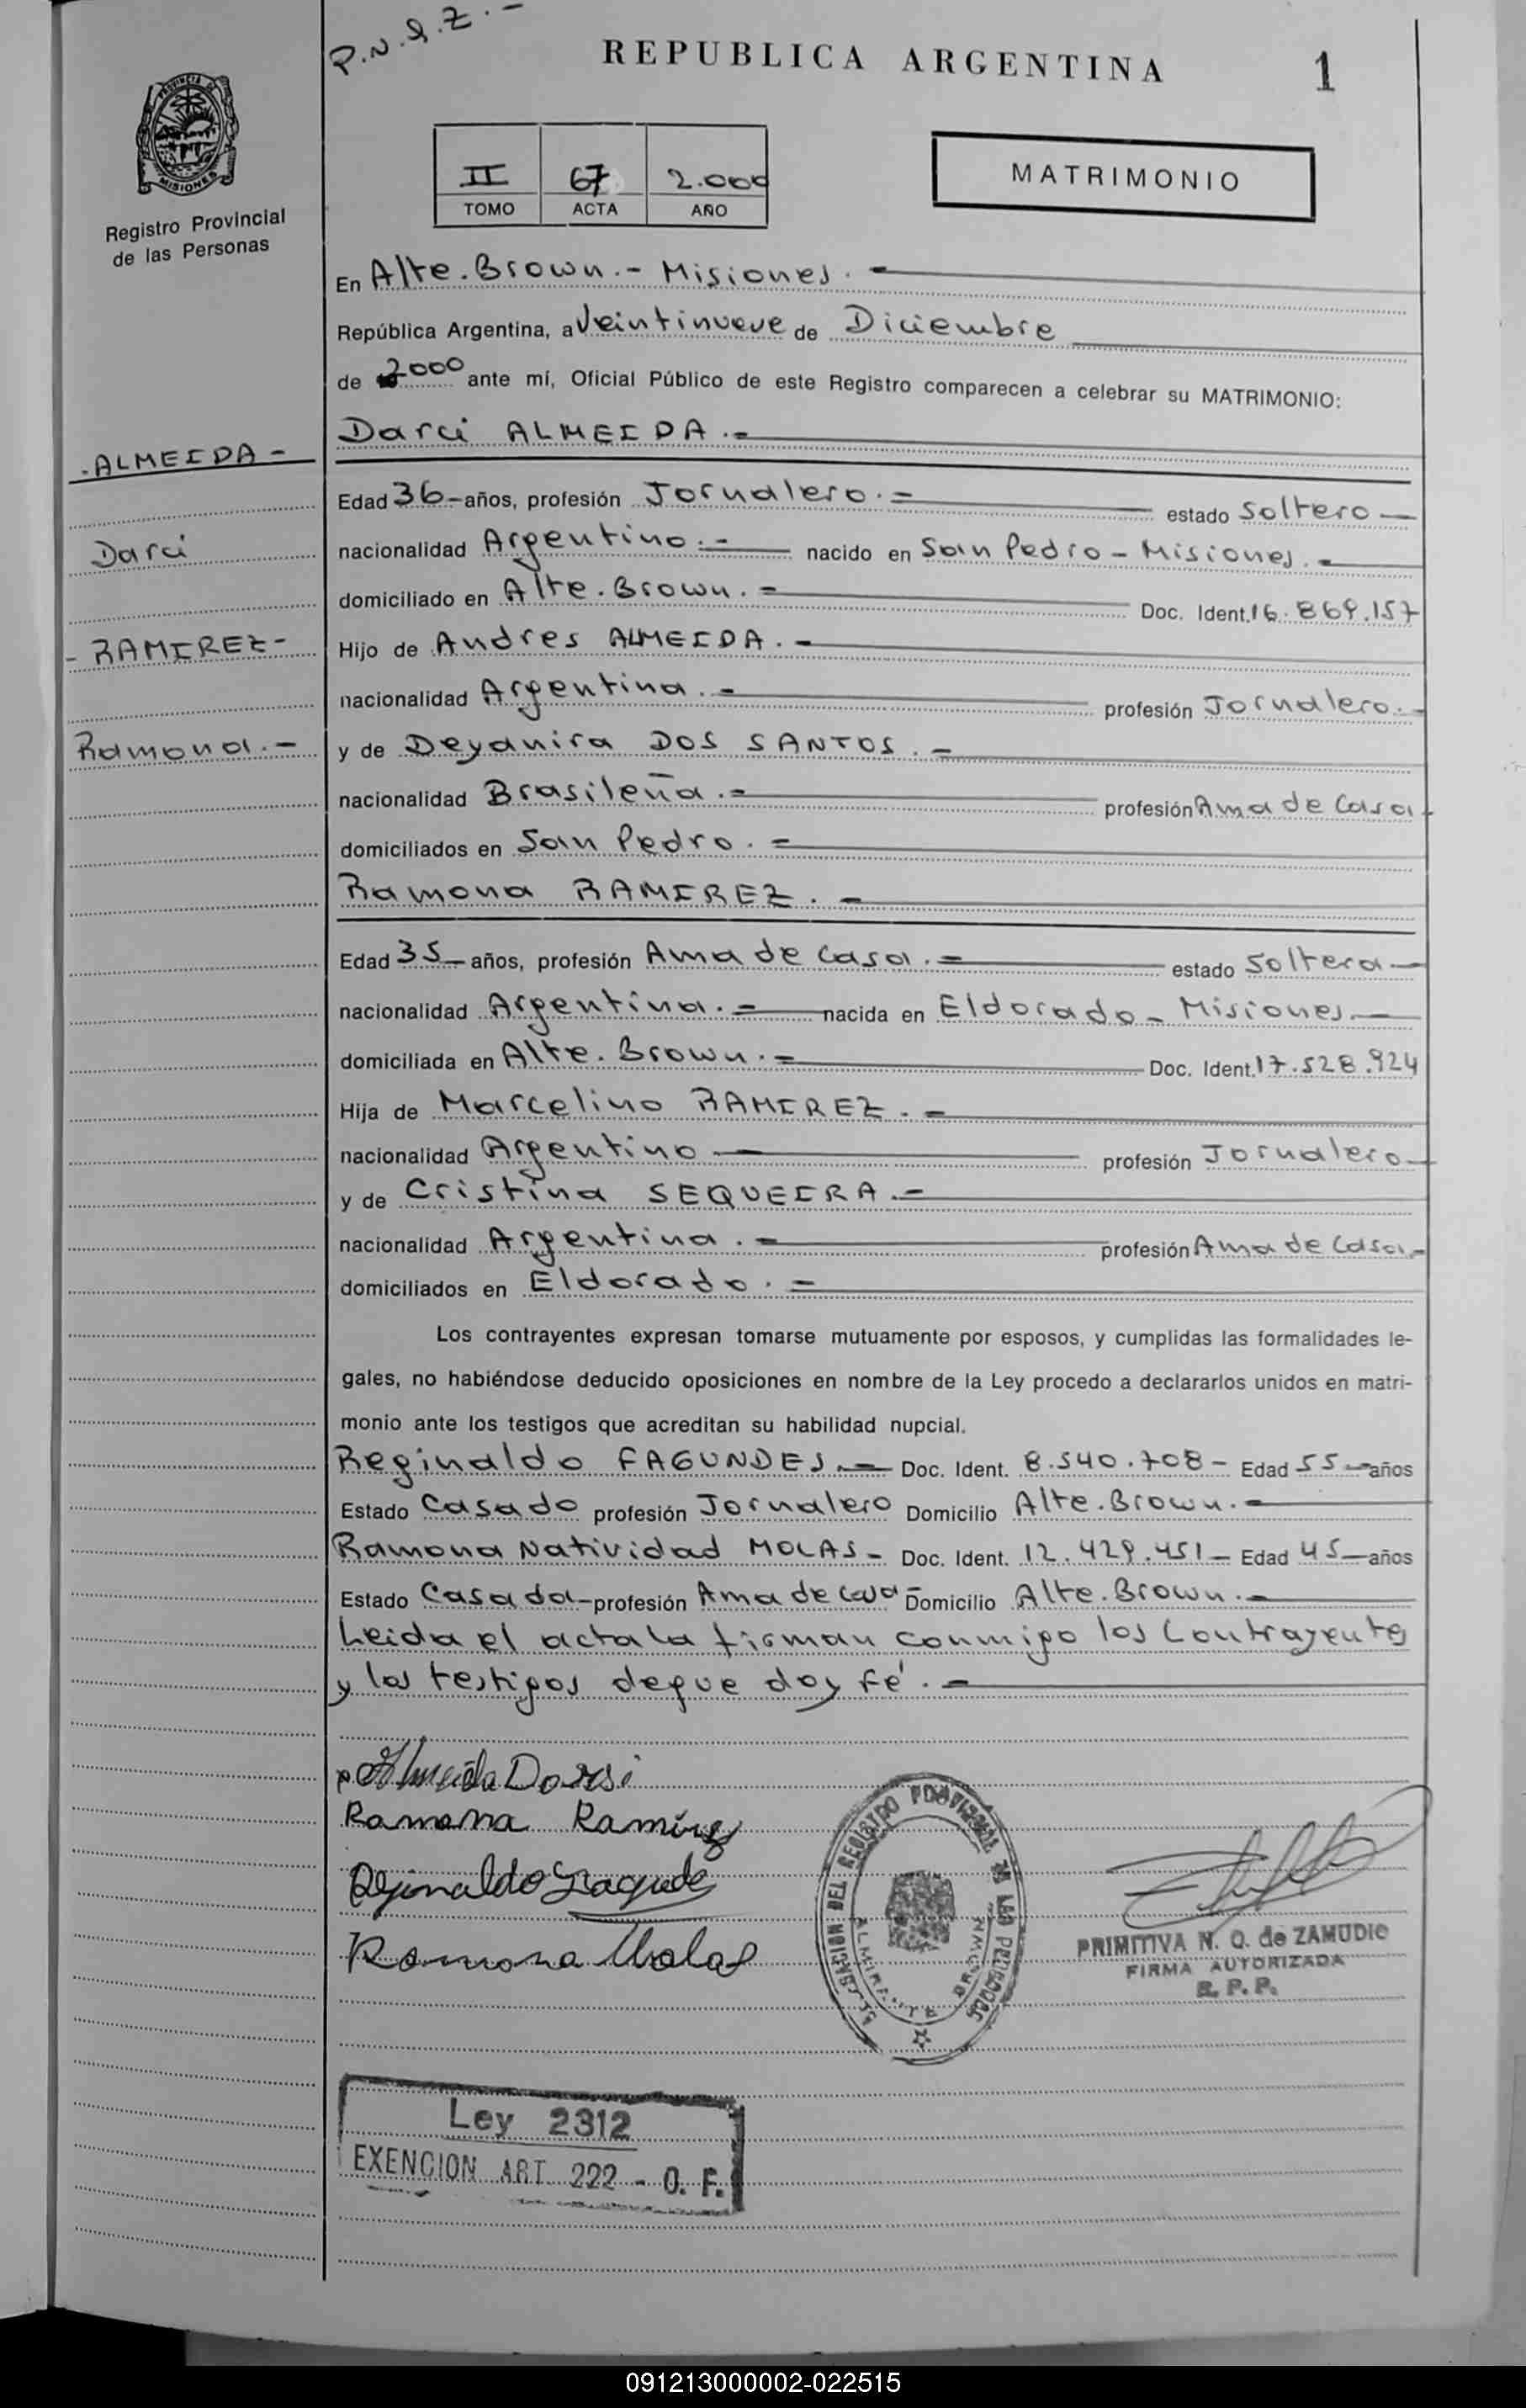 P.N.Q.Z.-
REPUBLICA ARGENTINA
1
PROVINCIA DE
MISIONES
Registro Provincial
de las Personas
II 67 2.000
TOMO ACTA AÑO
MATRIMONIO
En Alte. Brown.- Misiones.-
República Argentina, a Veintinueve de Diciembre
de 2000 ante mí, Oficial Público de este Registro comparecen a celebrar su MATRIMONIO:
Darci ALMEIDA.-
-ALMEIDA-
Edad 36- años, profesión Jornalero.- estado Soltero-
Darci
nacionalidad Argentino.- nacido en San Pedro - Misiones.-
domiciliado en Alte. Brown.- Doc. Ident. 16.869.157
-RAMIREZ-
Hijo de Andres ALMEIDA.-
nacionalidad Argentina.- profesión Jornalero.-
Ramona.-
y de Deyanira DOS SANTOS.-
nacionalidad Brasileña.- profesión Ama de Casa-
domiciliados en San Pedro.-
Ramona RAMIREZ.-
Edad 35- años, profesión Ama de Casa.- estado Soltera-
nacionalidad Argentina.- nacida en Eldorado - Misiones.-
domiciliada en Alte. Brown.- Doc. Ident. 17.528.924
Hija de Marcelino RAMIREZ.-
nacionalidad Argentino- profesión Jornalero-
y de Cristina SEQUEIRA.-
nacionalidad Argentina.- profesión Ama de Casa.-
domiciliados en Eldorado.-
Los contrayentes expresan tomarse mutuamente por esposos, y cumplidas las formalidades le-
gales, no habiéndose deducido oposiciones en nombre de la Ley procedo a declararlos unidos en matri-
monio ante los testigos que acreditan su habilidad nupcial.
Reginaldo FAGUNDES.- Doc. Ident. 8.540.708- Edad 55- años
Estado Casado profesión Jornalero Domicilio Alte. Brown.-
Ramona Natividad MOLAS- Doc. Ident. 12.429.451- Edad 45- años
Estado Casada- profesión Ama de Casa- Domicilio Alte. Brown.-
Leida el acta la firman conmigo los Contrayentes
y los testigos de que doy Fé.-
Almeida Darsi
Ramona Ramirez
Reginaldo Fagunde
Ramona Molas
DELEGACION DEL REGISTRO PROVINCIAL DE LAS PERSONAS
ALMIRANTE BROWN
PRIMITIVA N. Q. de ZAMUDIO
FIRMA AUTORIZADA
R. P. P.
Ley 2312
EXENCION ART 222 - O. F.
091213000002-022515